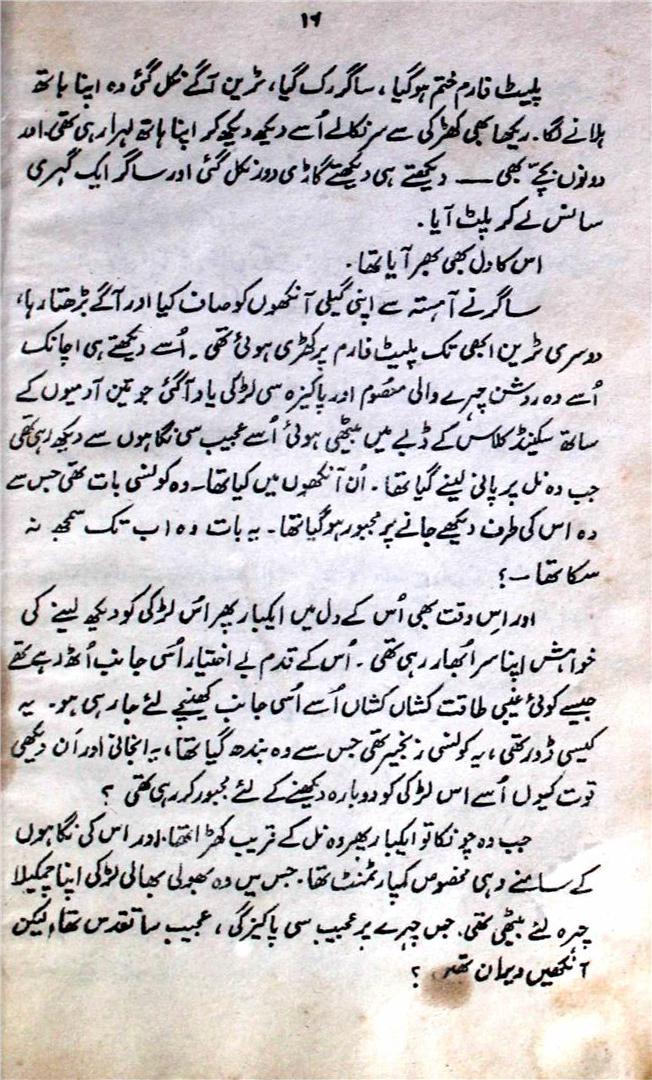 ۱۶
پلیٹ فارم ختم ہو گیا، ساگر رک گیا، ٹرین آگے نکل گئی وہ اپنا ہاتھ
ہلانے لگا۔ ریکھا بھی کھڑکی سے سر نکالے اُسے دیکھ دیکھ کر اپنا ہاتھ لہرا رہی تھی اور
دونوں بچے بھی — دیکھتے ہی دیکھتے گاڑی دور نکل گئی اور ساگر ایک گہری
سانس لے کر پلٹ آیا۔
اس کا دل بھی بھر آیا تھا۔
ساگر نے آہستہ سے اپنی گیلی آنکھوں کو صاف کیا اور آگے بڑھتا رہا،
دوسری ٹرین ابھی تک پلیٹ فارم پر کھڑی ہوئی تھی۔ اُسے دیکھتے ہی اچانک
اُسے وہ روشن چہرے والی معصُوم اور پاکیزہ سی لڑکی یاد آگئی جو تین آدمیوں کے
ساتھ سکینڈ کلاس کے ڈبے میں بیٹھی ہوئی اُسے عجیب سی نگاہوں سے دیکھ رہی تھی
جب وہ نل پر پانی لینے گیا تھا۔ اُن آنکھوں میں کیا تھا۔ وہ کونسی بات تھی جس سے
وہ اس کی طرف دیکھے جانے پر مجبور ہو گیا تھا۔ یہ بات وہ اب تک سمجھ نہ
سکا تھا —؟
اور اِس وقت بھی اُس کے دل میں ایکبار پھر اُس لڑکی کو دیکھ لینے کی
خواہش اپنا سر اُبھار رہی تھی۔ اُس کے قدم بے اختیار اُسی جانب اُٹھ رہے تھے
جیسے کوئی غیبی طاقت کشاں کشاں اُسے اُسی جانب کھینچے لئے جا رہی ہو۔ یہ
کیسی ڈور تھی، یہ کونسی زنجیر تھی جس سے وہ بندھ گیا تھا، یہ انجانی اور اَن دیکھی
قوت کیوں اُسے اس لڑکی کو دوبارہ دیکھنے کے لئے مجبور کر رہی تھی ؟
جب وہ چونکا تو ایکبار پھر وہ نل کے قریب کھڑا تھا۔ اور اس کی نگاہوں
کے سامنے وہی مخصوص کمپارٹمنٹ تھا۔ جس میں وہ بھولی بھالی لڑکی اپنا چمکیلا
چہرہ لئے بیٹھی تھی۔ جس چہرے پر عجیب سی پاکیزگی، عجیب سا تقدس تھا، لیکن
آنکھیں ویران تھیں ؟